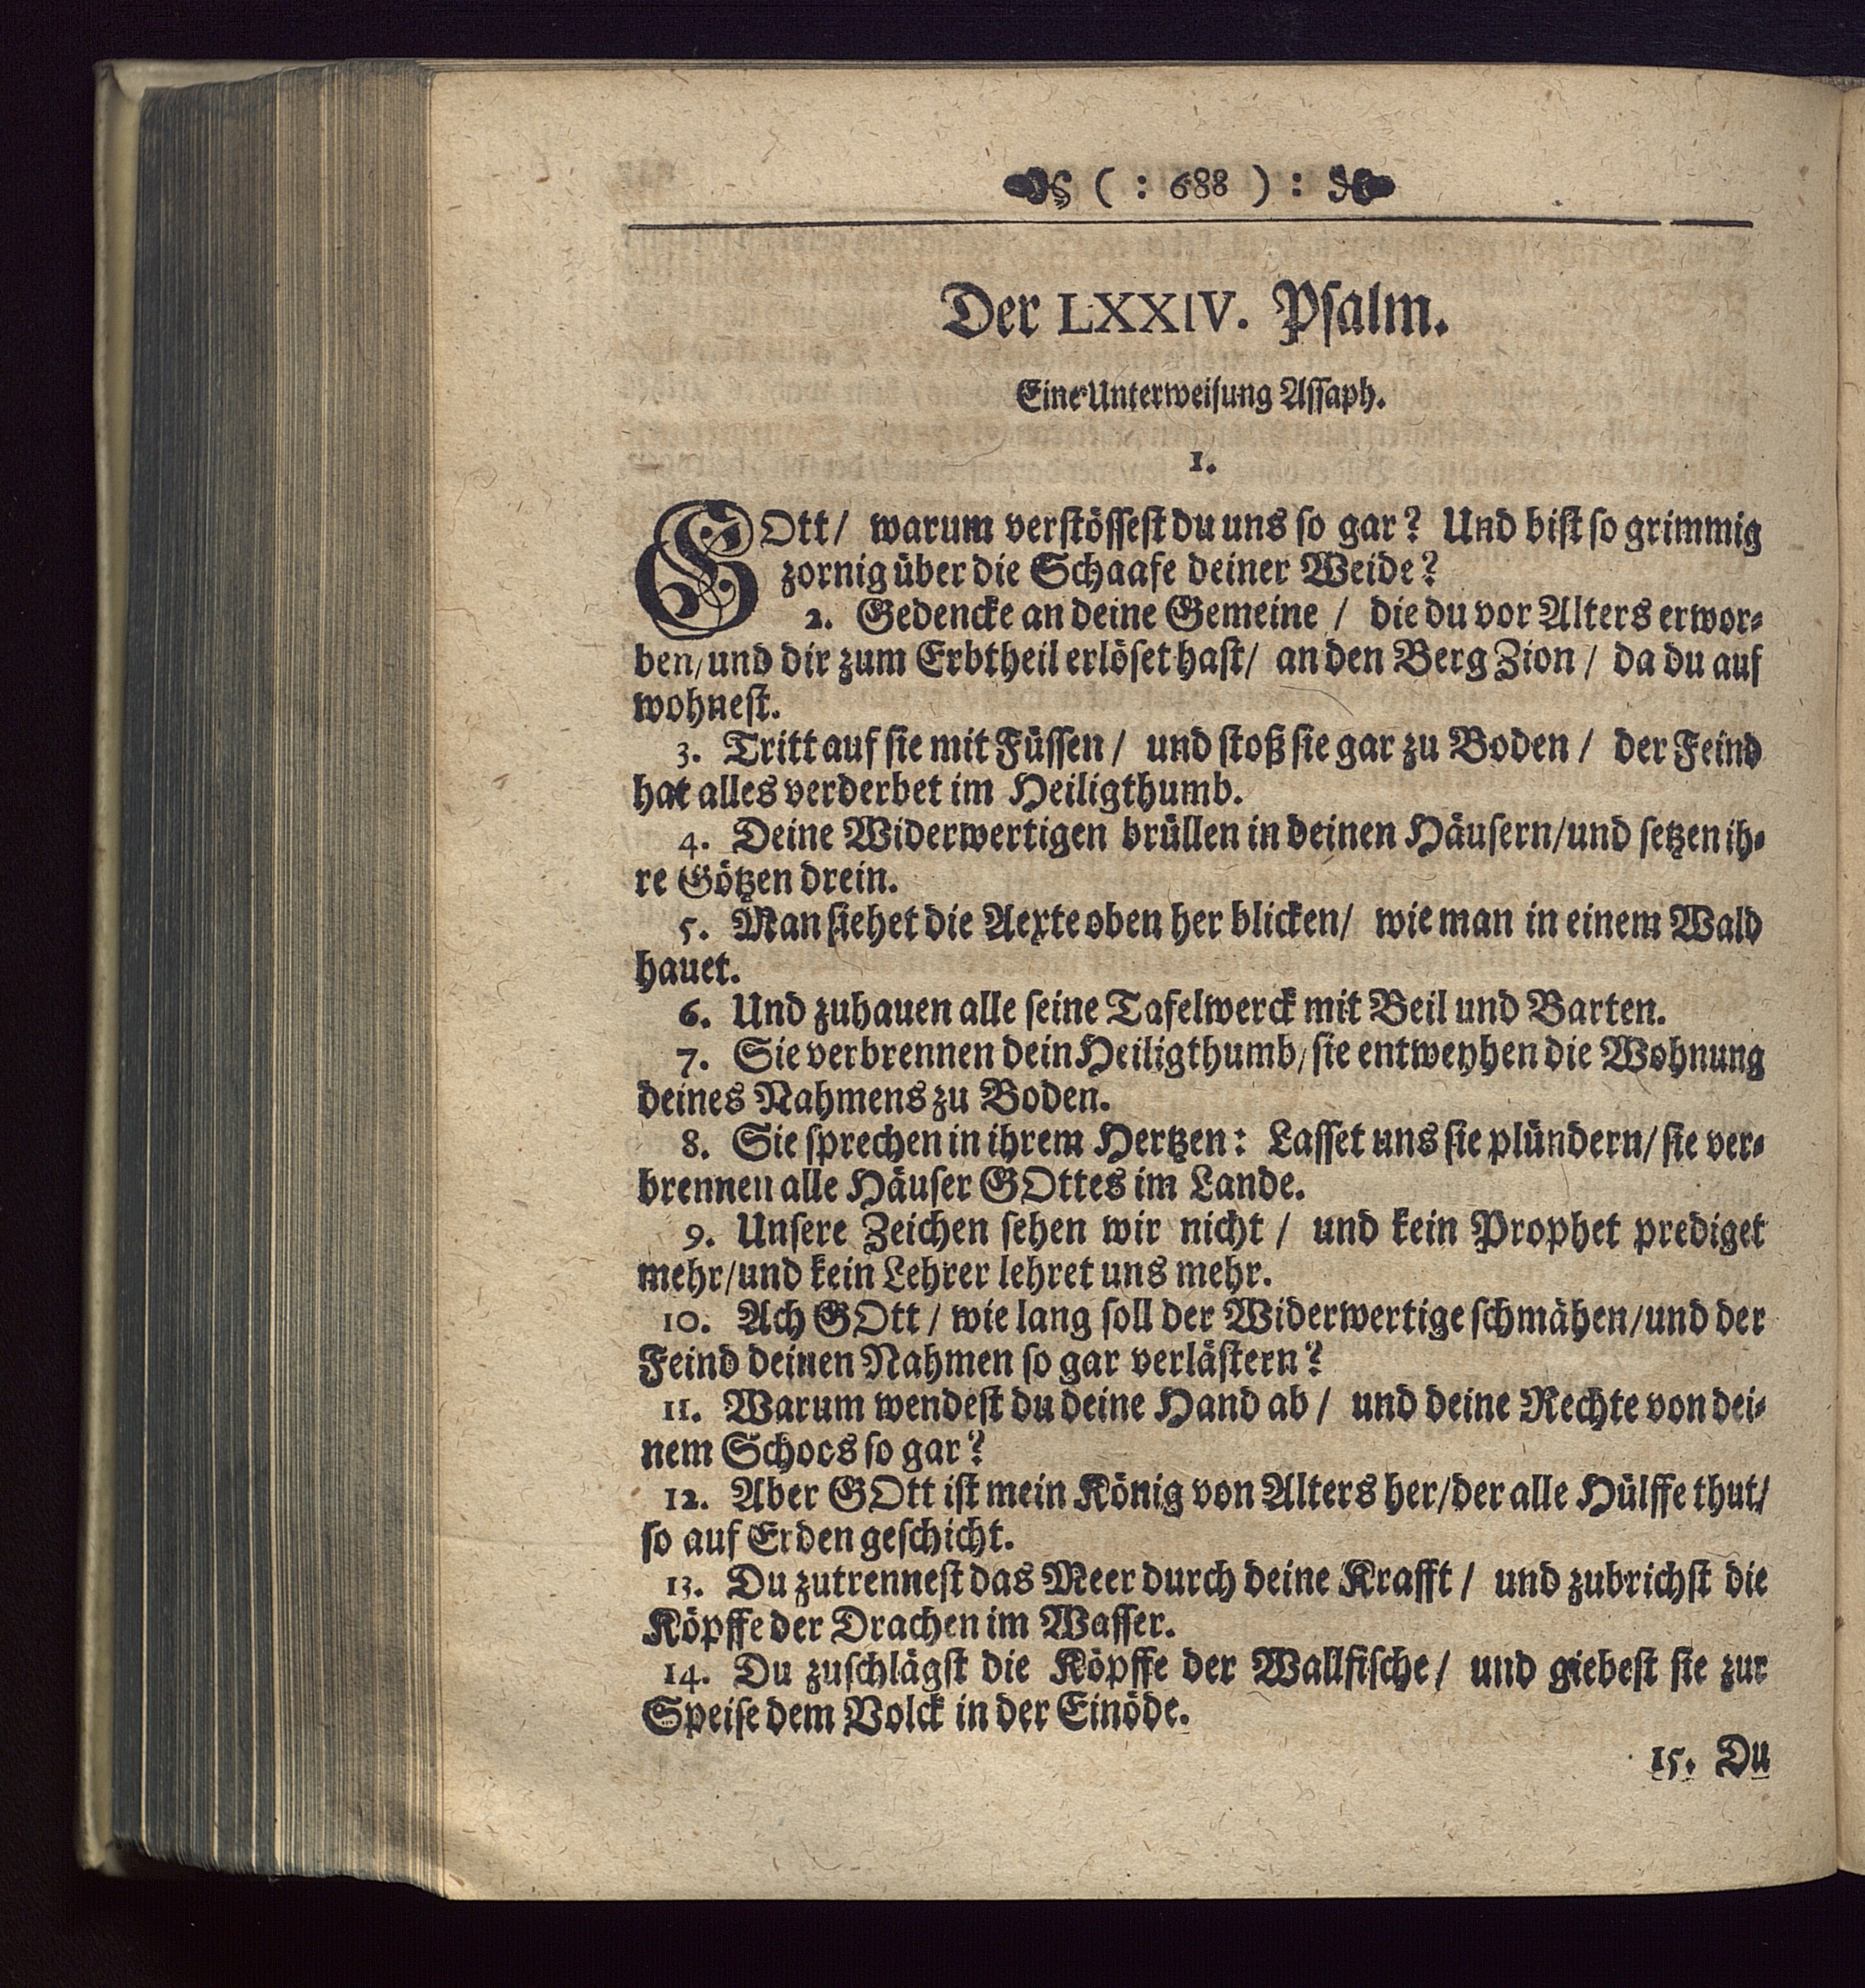 ( : 688 ) :
Der LXXIV. Psalm.
Eine Unterweisung Assaph.
1.
GOtt/ warum verstössest du uns so gar? Und bist so grimmig
zornig über die Schaafe deiner Weide?
2. Gedencke an deine Gemeine / die du vor Alters erwor-
ben/und dir zum Erbtheil erlöset hast/ an den Berg Zion / da du auf
wohnest.
3. Tritt auf sie mit Füssen / und stoß sie gar zu Boden / der Feind
hat alles verderbet im Heiligthumb.
4. Deine Widerwertigen brüllen in deinen Häusern/und setzen ih-
re Götzen drein.
5. Man siehet die Aexte oben her blicken/ wie man in einem Wald
hauet.
6. Und zuhauen alle seine Tafelwerck mit Beil und Barten.
7. Sie verbrennen dein Heiligthumb/sie entweyhen die Wohnung
deines Nahmens zu Boden.
8. Sie sprechen in ihrem Hertzen: Lasset uns sie plündern/ sie ver-
brennen alle Häuser GOttes im Lande.
9. Unsere Zeichen sehen wir nicht / und kein Prophet prediget
mehr/und kein Lehrer lehret uns mehr.
10. Ach GOtt / wie lang soll der Widerwertige schmähen/und der
Feind deinen Nahmen so gar verlästern?
11. Warum wendest du deine Hand ab / und deine Rechte von dei-
nem Schoos so gar?
12. Aber GOtt ist mein König von Alters her/der alle Hülffe thut/
so auf Erden geschicht.
13. Du zutrennest das Meer durch deine Krafft / und zubrichst die
Köpffe der Drachen im Wasser.
14. Du zuschlägst die Köpffe der Wallfische / und giebest sie zur
Speise dem Volck in der Einöde.
15. Du